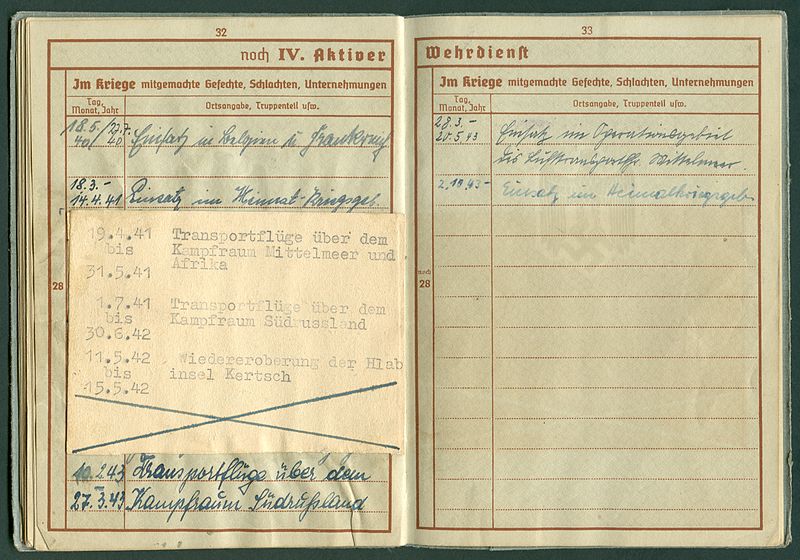 32
noch IV. Aktiver
Im Kriege mitgemachte Gefechte, Schlachten, Unternehmungen
Tag, Monat, Jahr
Ortsangabe, Truppenteil usw.
18.5./27.7.
40/ 40
Einsatz in Belgien u. Frankreich
18.3.-
14.4.41 Einsatz im Heimat-Kriegsgeb.
28
19.4.41 Transportflüge über dem
bis Kampfraum Mittelmeer und
31.5.41 Afrika
1.7.41 Transportflüge über dem
bis Kampfraum Südrussland
30.6.42
11.5.42 Wiedereroberung der Hlab
bis insel Kertsch
15.5.42
10.2.43 Transportflüge über dem
27.3.43 Kampfraum Südrußland
33
Wehrdienst
Im Kriege mitgemachte Gefechte, Schlachten, Unternehmungen
Tag, Monat, Jahr
Ortsangabe, Truppenteil usw.
28.3.- Einsatz im Operationsgebiet
20.5.43 des Lufttransportfhr. Mittelmeer.
2.10.43- Einsatz im Heimatkriegsgeb.
noch
28